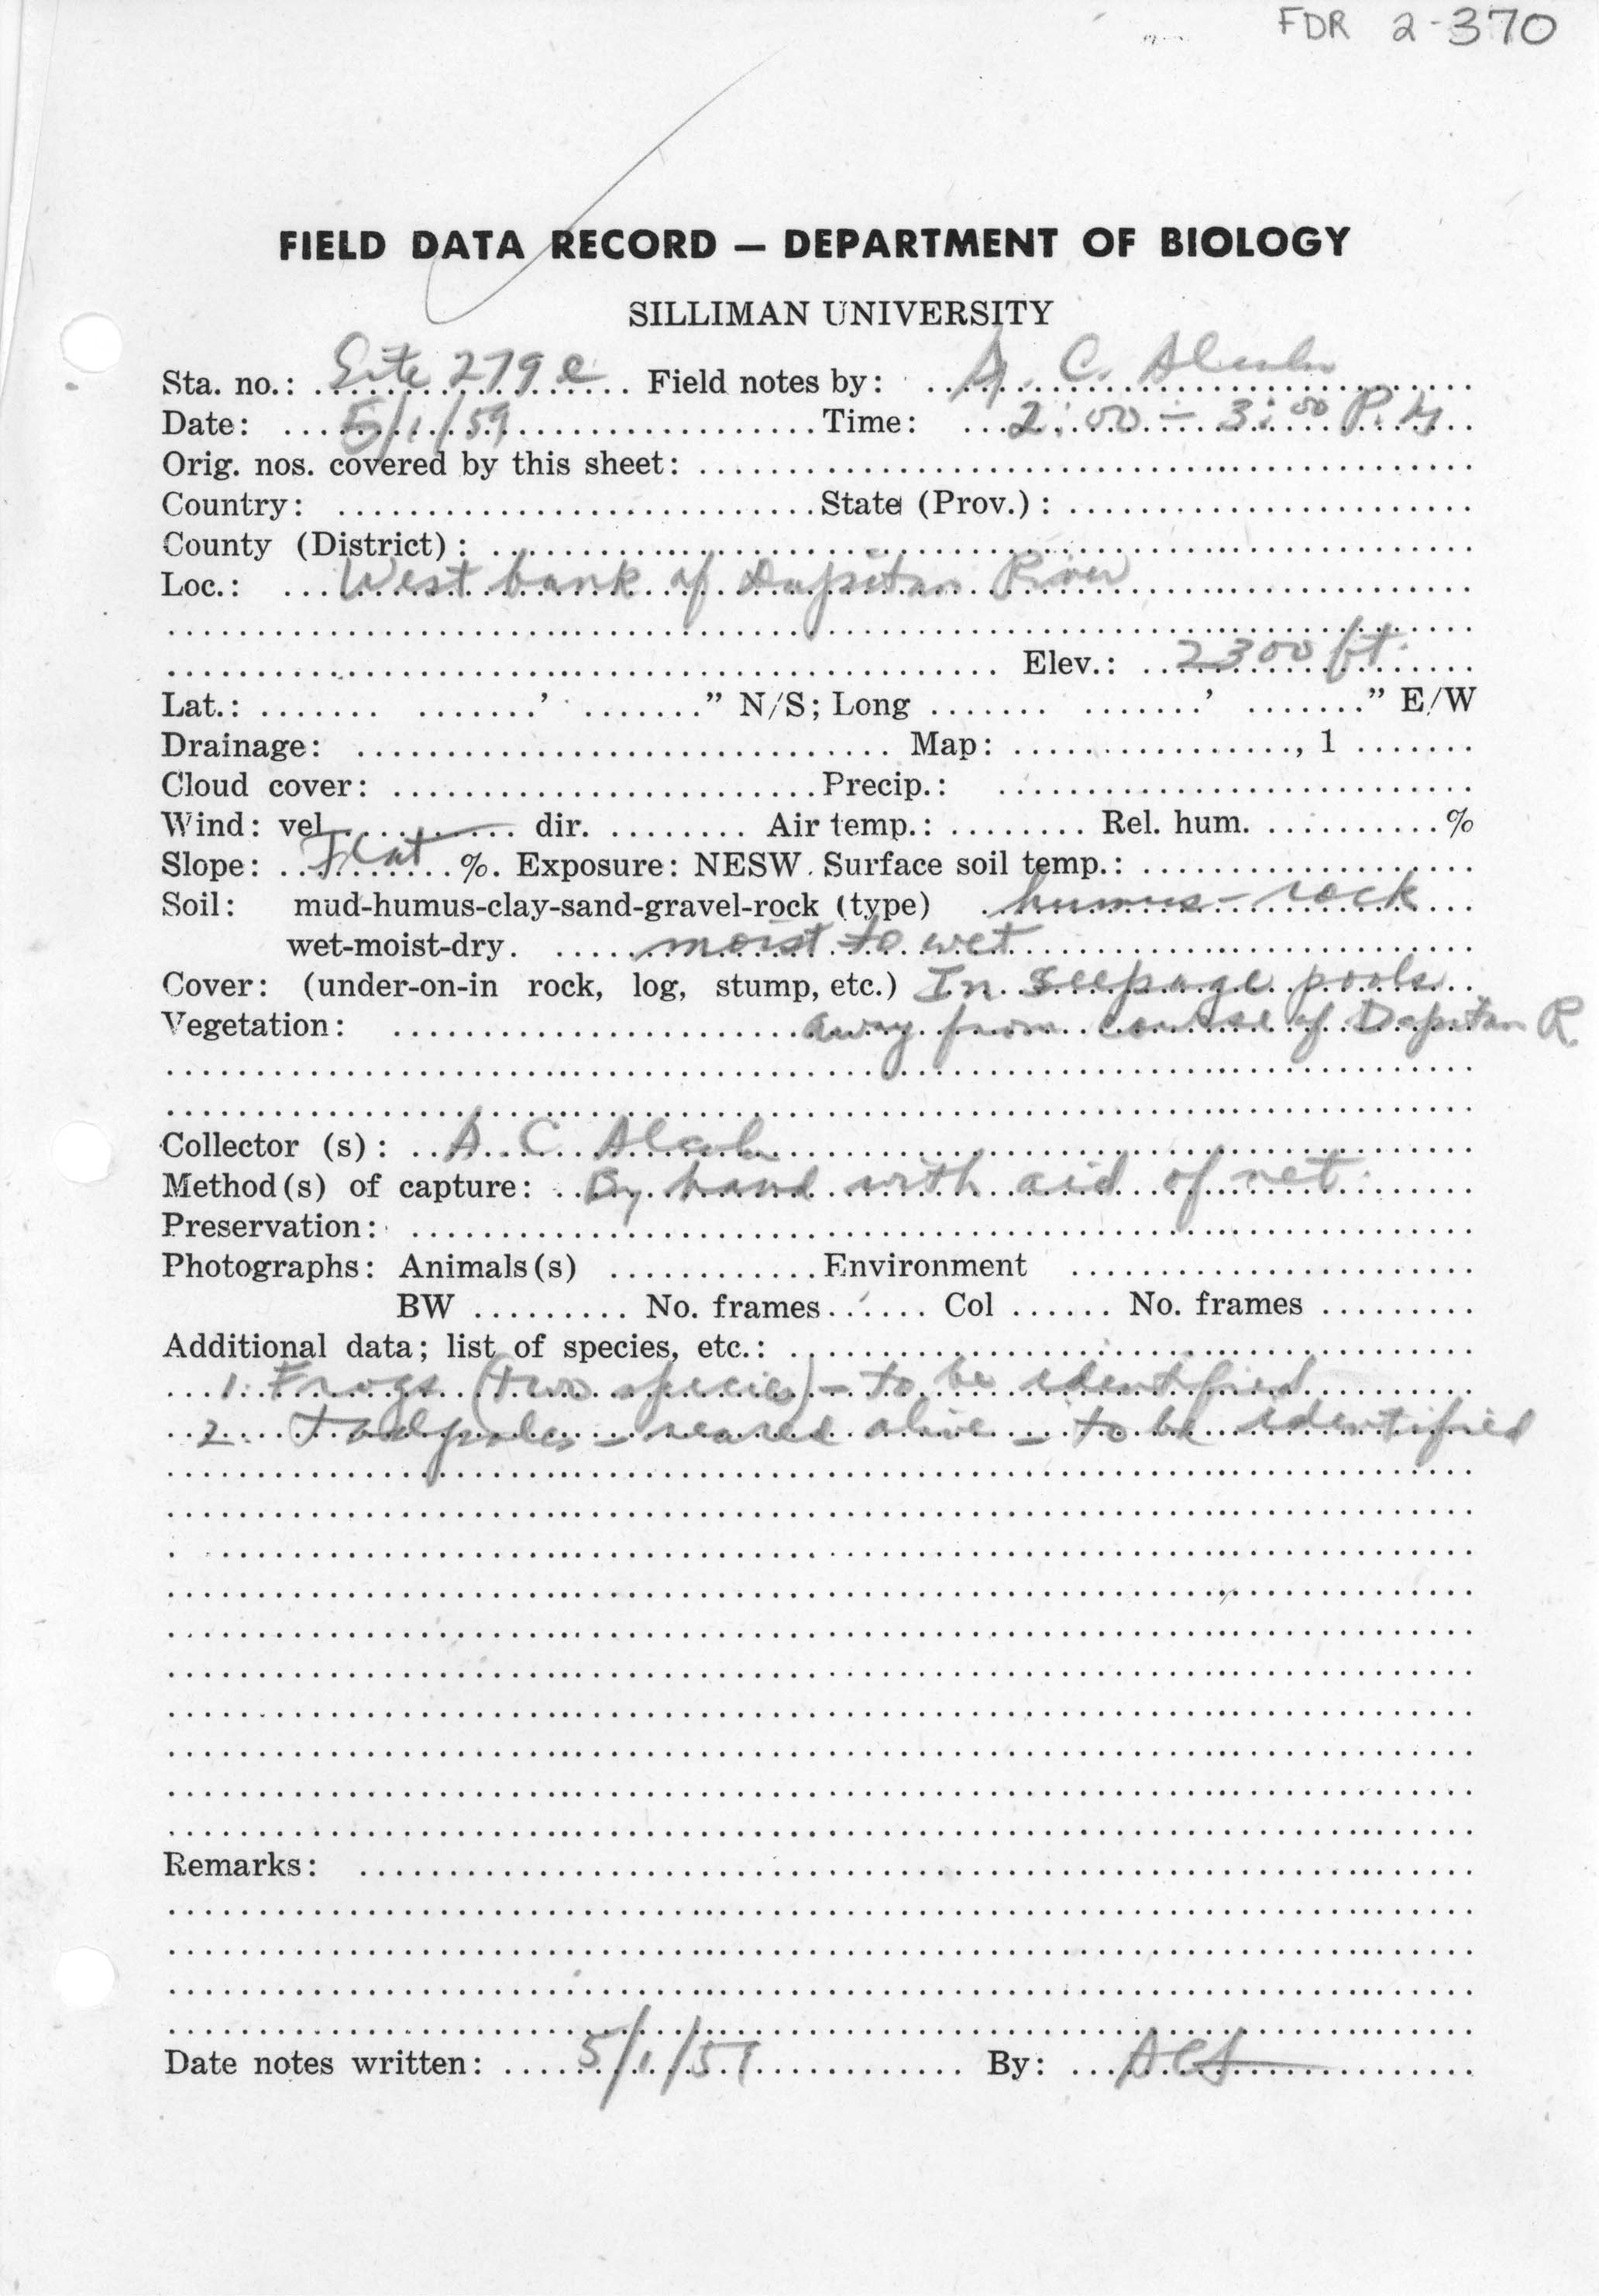 FDR 2-370
FIELD DATA RECORD — DEPARTMENT OF BIOLOGY
SILLIMAN UNIVERSITY
Sta. no.: Site 279 e Field notes by: A. C. Alcala
Date: 5/1/59 Time: 2:00 - 3:00 P.M
Orig. nos. covered by this sheet:
Country: State (Prov.):
County (District):
Loc.: West bank of Dapitan River
Elev.: 2300 ft.
Lat.: ' " N/S; Long ' " E/W
Drainage: Map: , 1
Cloud cover: Precip.:
Wind: vel. dir. Air temp.: Rel. hum. %
Slope: Flat %. Exposure: NESW. Surface soil temp.:
Soil: mud-humus-clay-sand-gravel-rock (type) humus - rock
wet-moist-dry. moist to wet
Cover: (under-on-in rock, log, stump, etc.) In seepage pools
Vegetation: away from course of Dapitan R.
Collector (s): A. C. Alcala
Method(s) of capture: By hand with aid of net.
Preservation:
Photographs: Animals(s) Environment
BW No. frames Col No. frames
Additional data; list of species, etc.:
1. Frogs (two species) - to be identified
2. Tadpoles - reared alive - to be identified
Remarks:
Date notes written: 5/1/59 By: ACA